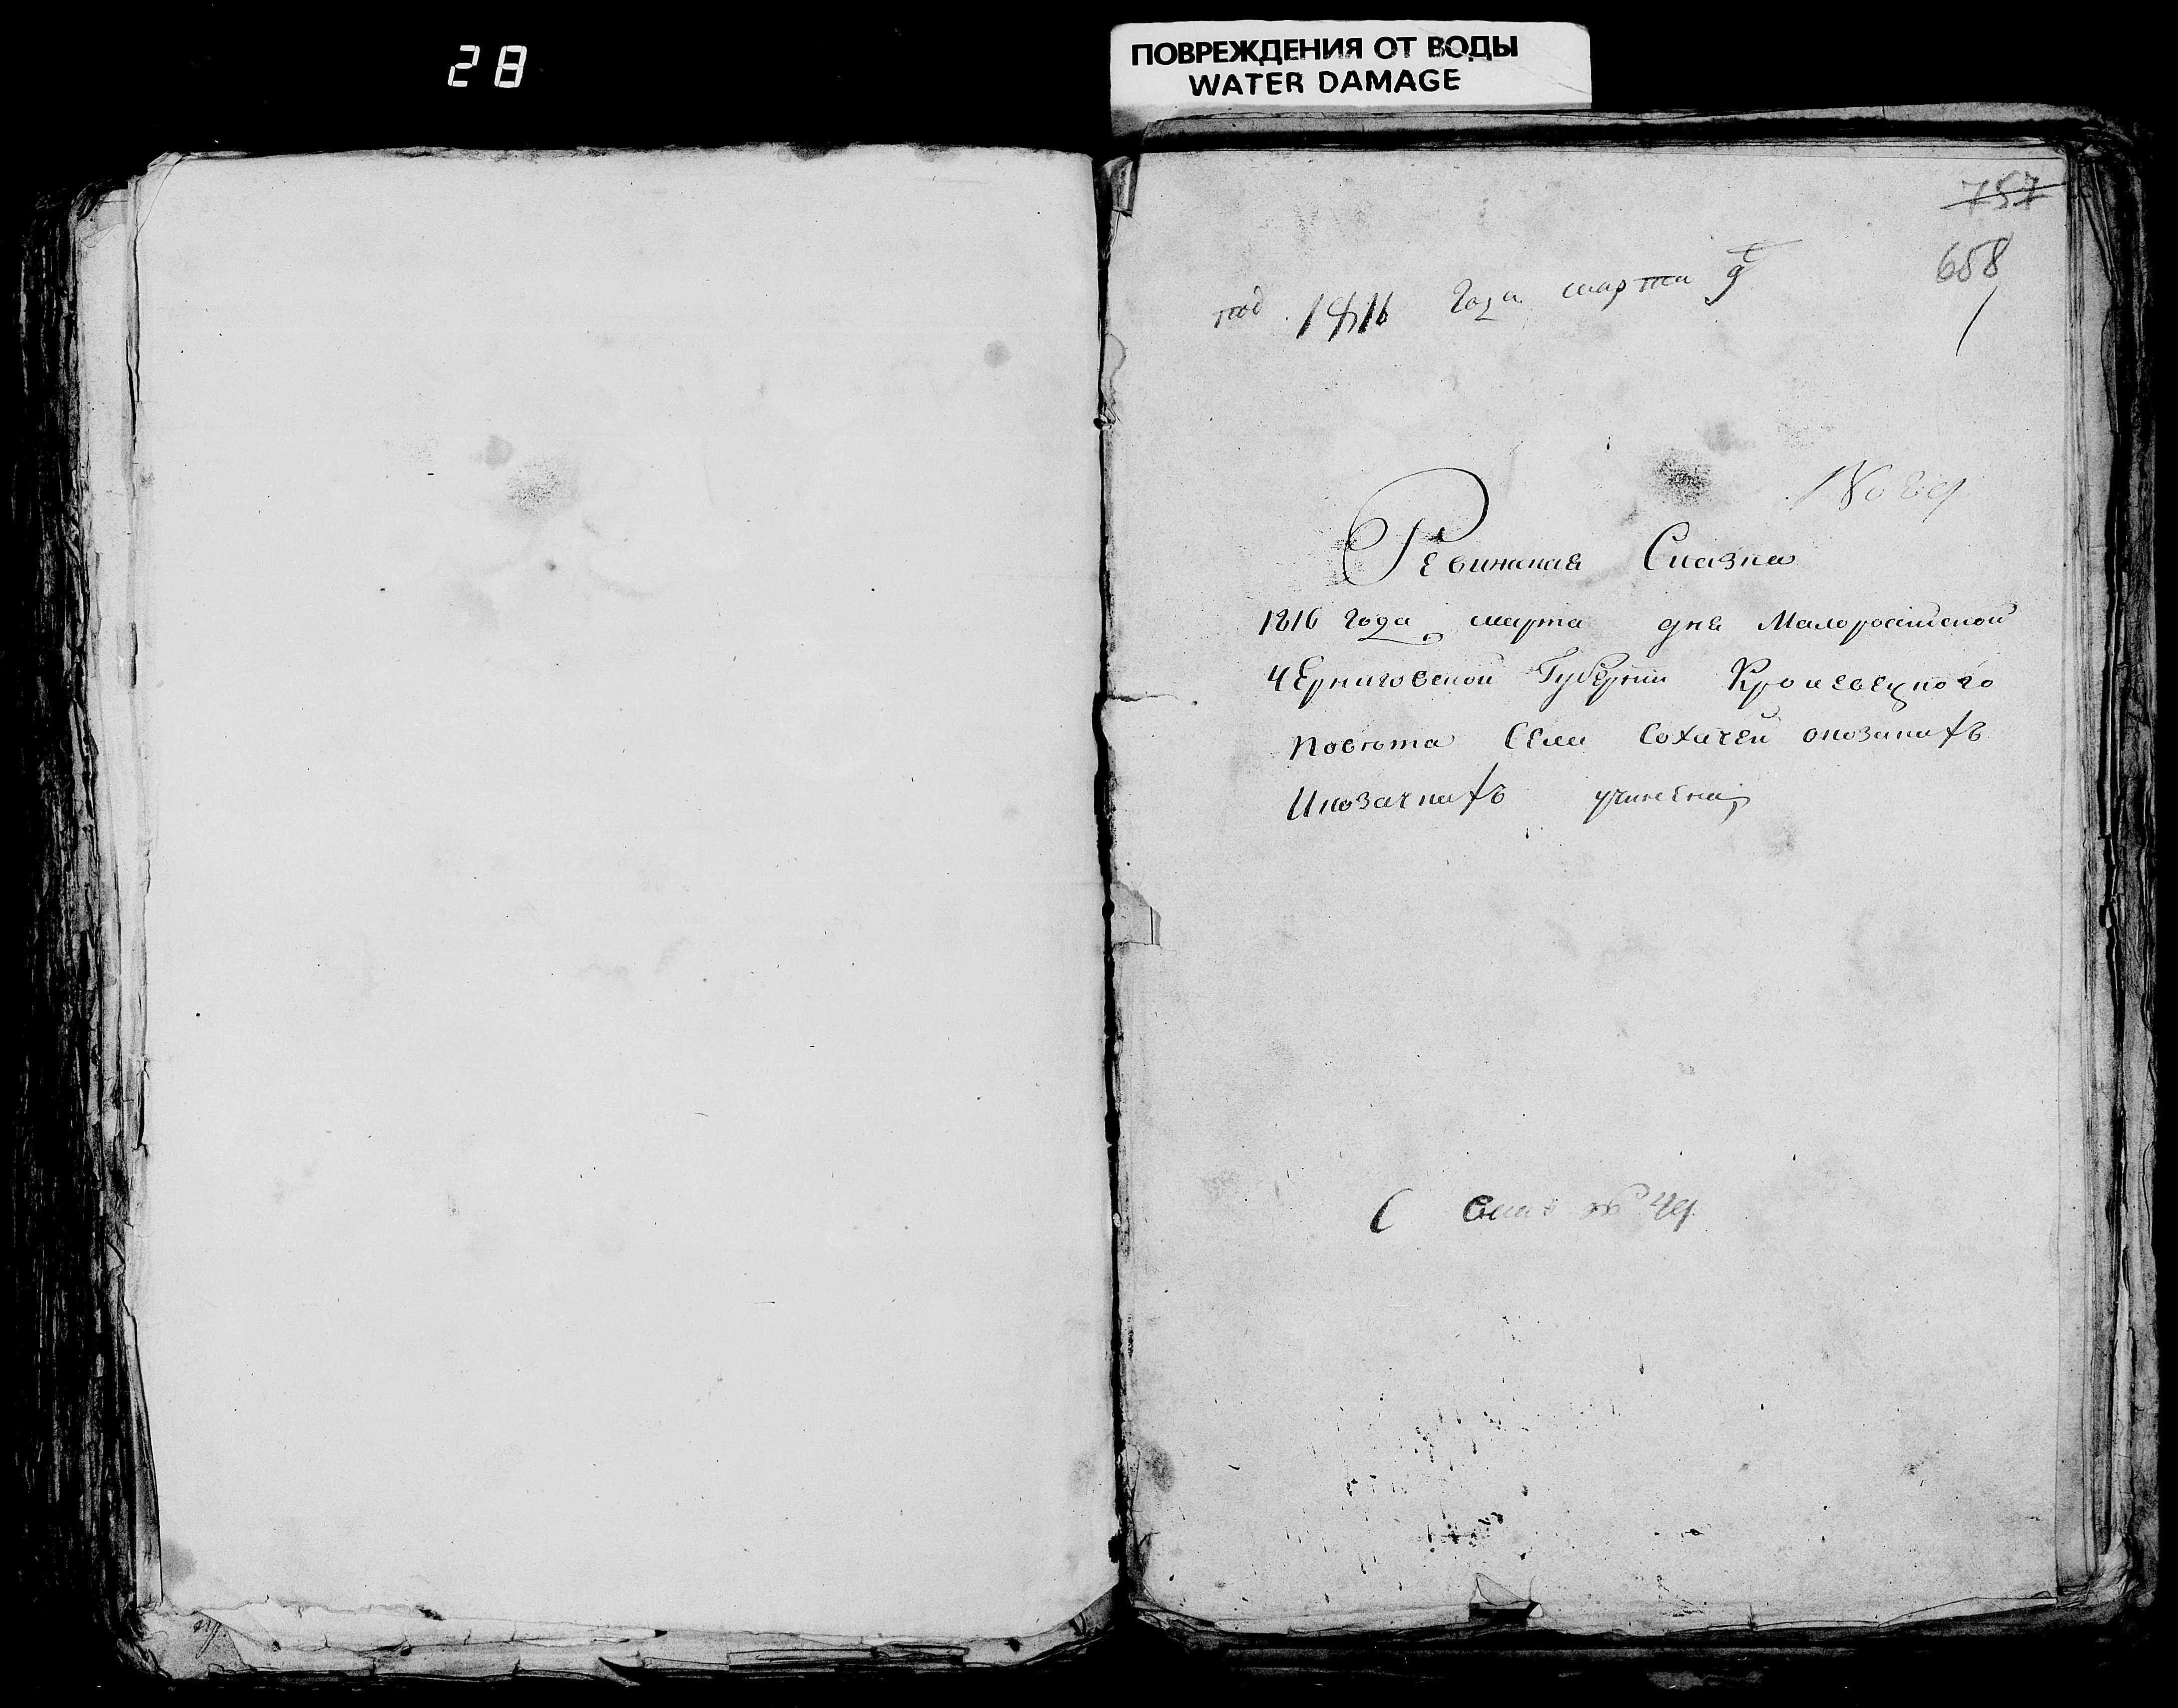 28
ПОВРЕЖДЕНИЯ ОТ ВОДЫ
WATER DAMAGE
757
658
под 1816 Года марта 9
Ревижская Сказка
1816 года марта дня Малоросийской
Черниговской Губернїи Кролевецкого
повѣта Села Сохачей о козакахъ
И козачкахъ учинена